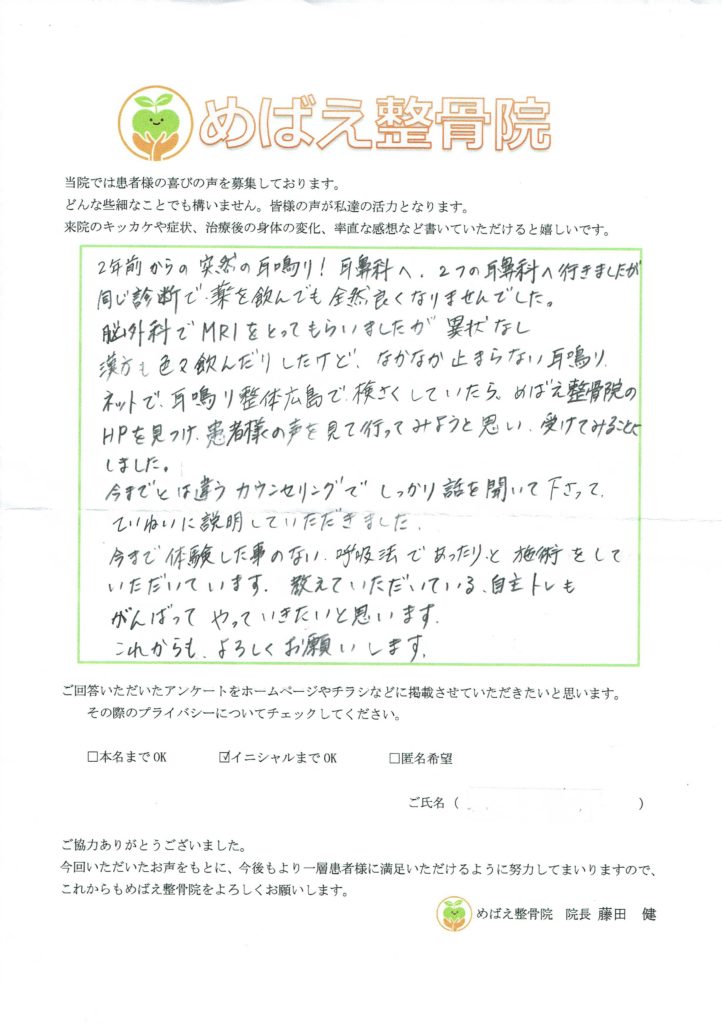 めばえ整骨院
当院では患者様の喜びの声を募集しております。
どんな些細なことでも構いません。皆様の声が私達の活力となります。
来院のキッカケや症状、治療後の身体の変化、率直な感想など書いていただけると嬉しいです。
2年前からの突然の耳鳴り!耳鼻科へ、2つの耳鼻科へ行きましたが
同じ診断で、薬を飲んでも全然良くなりませんでした。
脳外科でMRIをとってもらいましたが異状なし
漢方も色々飲んだりしたけど、なかなか止まらない耳鳴り、
ネットで、耳鳴り整体広島で、検さくしていたら、めばえ整骨院の
HPを見つけ、患者様の声を見て行ってみようと思い、受けてみることに
しました。
今までとは違うカウンセリングでしっかり話を聞いて下さって、
ていねいに説明していただきました、
今まで体験した事のない、呼吸法であったり、と施術をして
いただいています、教えていただいている、自主トレも
がんばってやっていきたいと思います、
これからも、よろしくお願いします、
ご回答いただいたアンケートをホームページやチラシなどに掲載させていただきたいと思います。
その際のプライバシーについてチェックしてください。
□本名までOK ☑イニシャルまでOK □匿名希望
ご氏名( )
ご協力ありがとうございました。
今回いただいたお声をもとに、今後もより一層患者様に満足いただけるように努力してまいりますので、
これからもめばえ整骨院をよろしくお願いします。
めばえ整骨院 院長 藤田 健